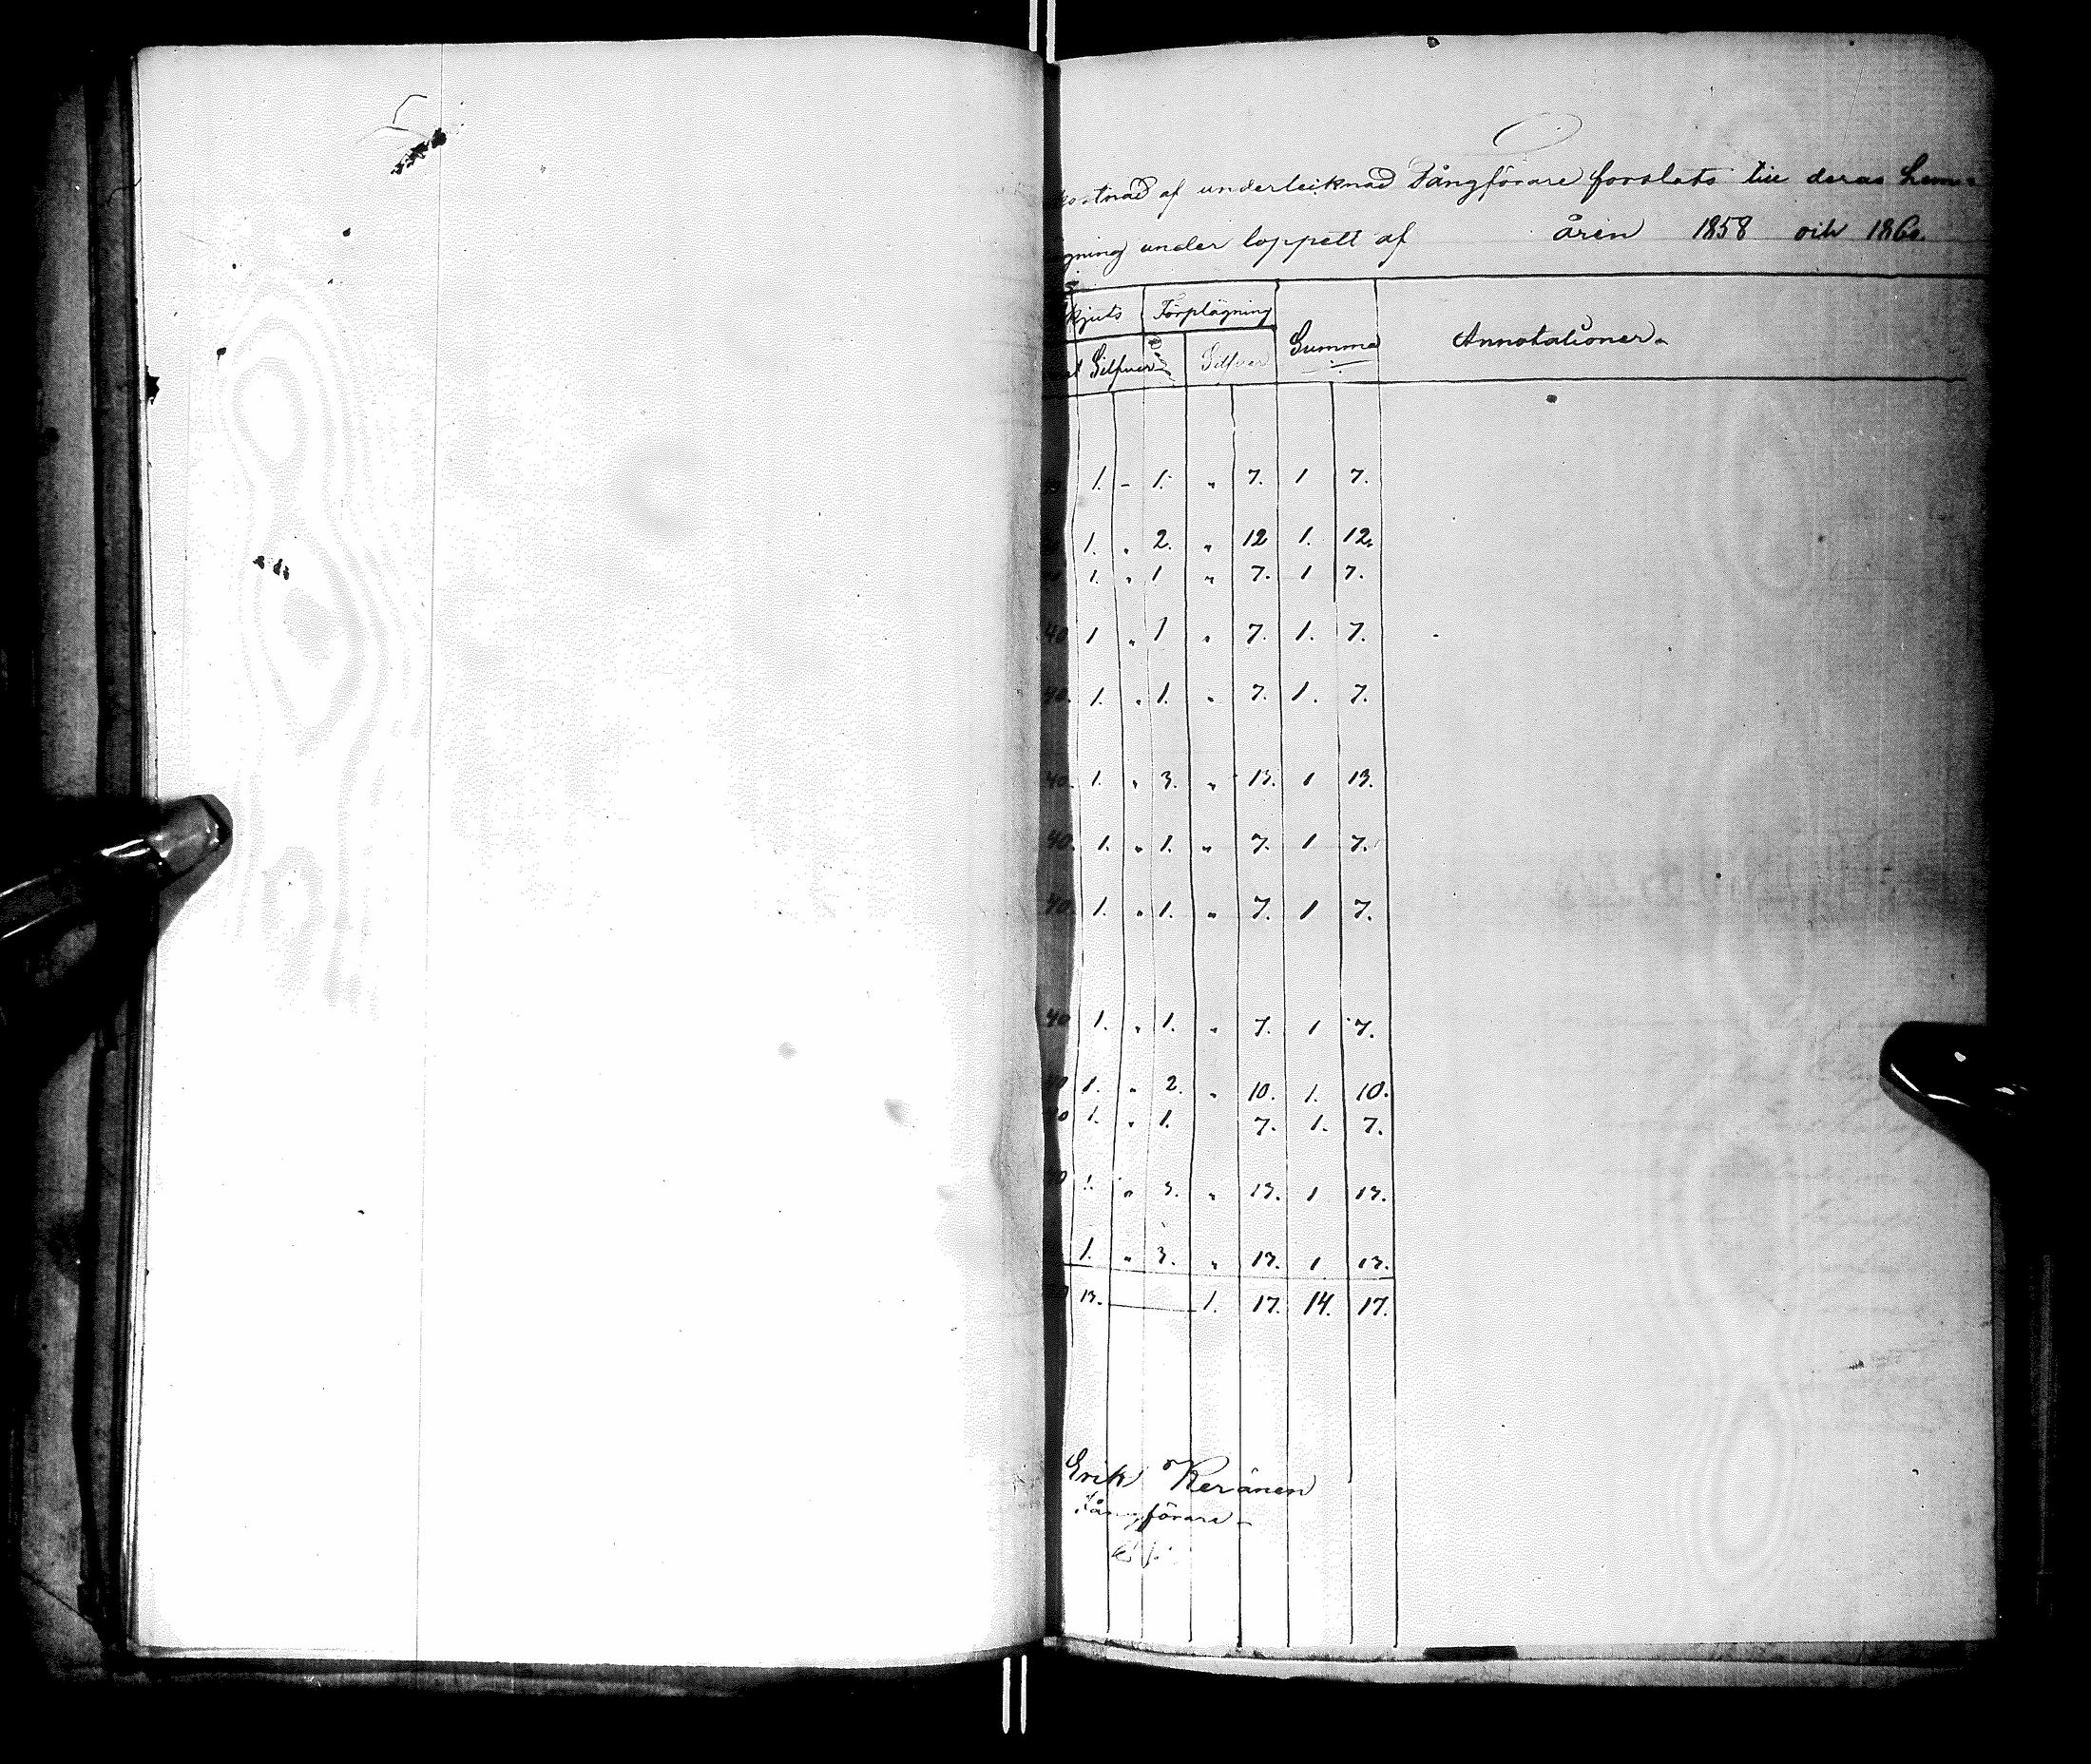 kostnad af underteiknad Fångförare forslats till deras hem-
gning under loppett af åren 1858 och 1860.
skjuts Förplägning Summa Annotationer
Silfver Silfver
1. - 1. " 7. 1 7.
1. " 2. " 12 1. 12.
1. " 1 " 7. 1 7.
40 1 " 1 " 7. 1. 7.
40. 1. " 1. " 7. 1. 7.
40. 1. " 3. " 13. 1 13.
40. 1. " 1. " 7. 1 7.
40. 1. " 1. " 7. 1 7.
40 1. " 1. " 7. 1 7.
40 1. " 2. " 10. 1. 10.
40 1. " 1. 7. 1. 7.
40 1. " 3. " 13. 1 13.
1. " 3. " 13. 1 13.
13. 1. 17. 14. 17.
Erik Keränen
Fångförare